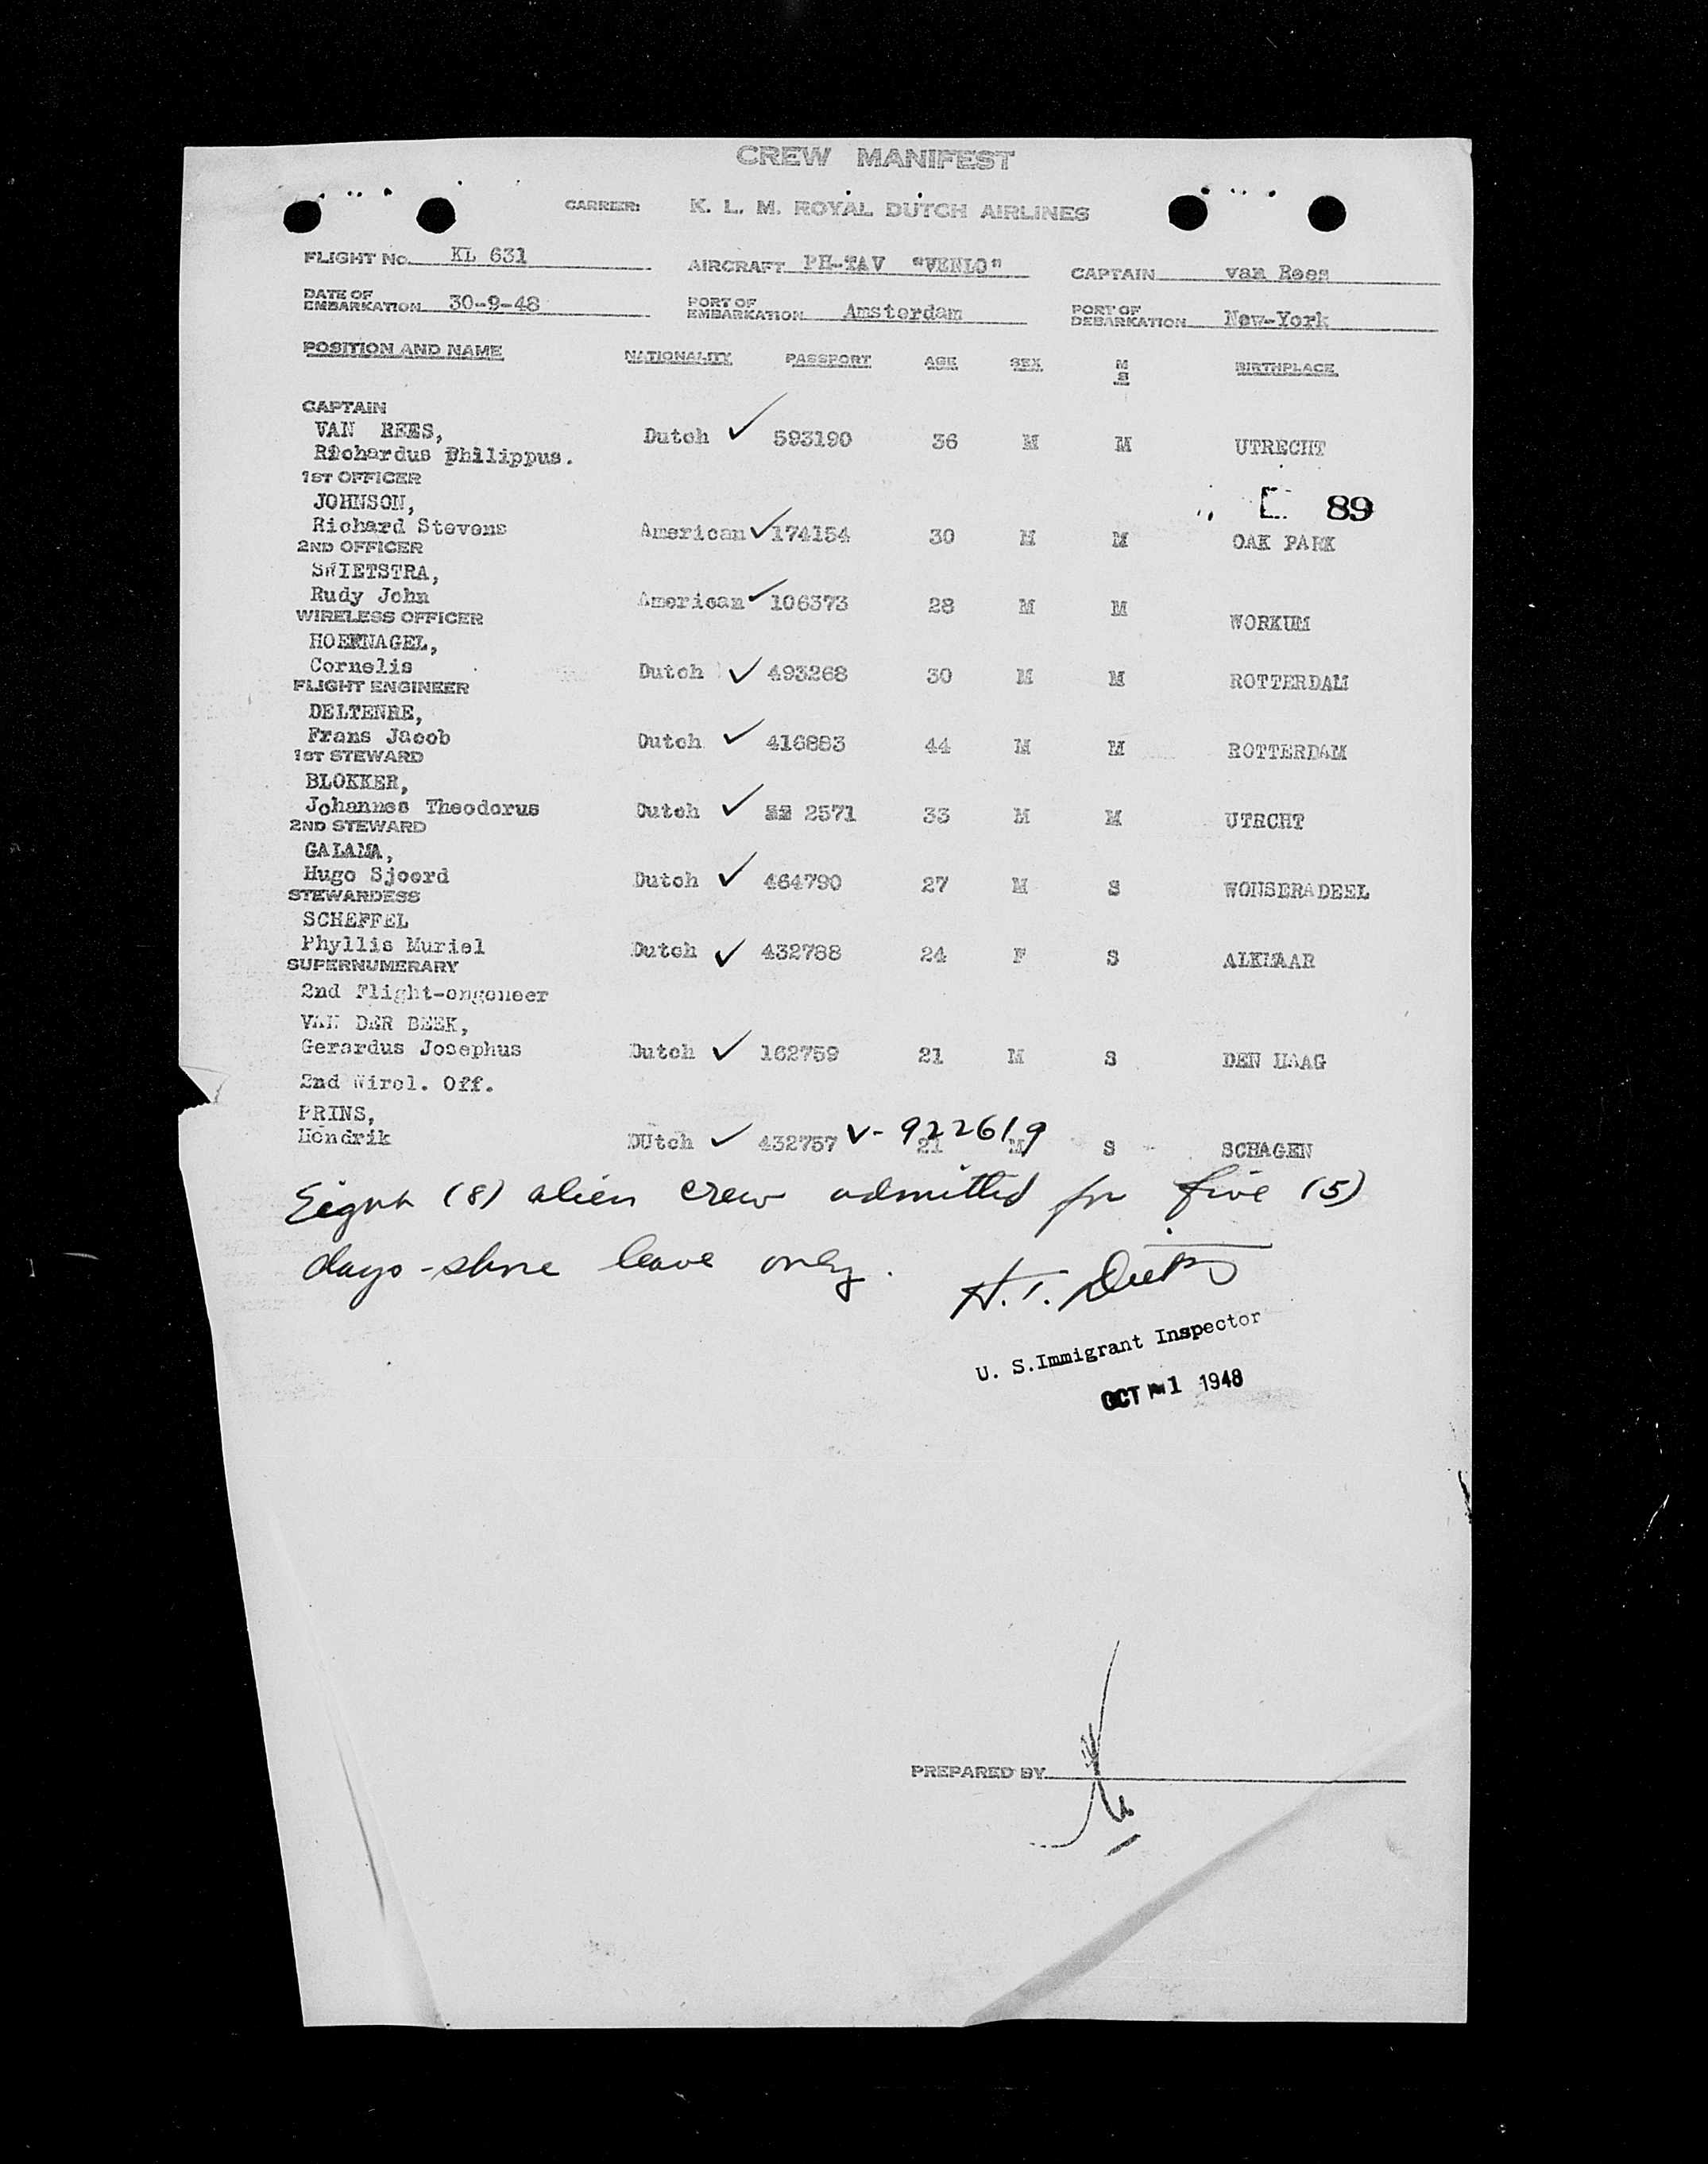 CREW MANIFEST
CARRIER: K. L. M. ROYAL DUTCH AIRLINES
FLIGHT No. KL 631 AIRCRAFT PH-TAV "VENLO" CAPTAIN van Rees
DATE OF EMBARKATION 30-9-48 PORT OF EMBARKATION Amsterdam PORT OF DEBARKATION New-York
POSITION AND NAME NATIONALITY PASSPORT AGE SEX M S BIRTHPLACE
CAPTAIN
VAN REES,
Richardus Philippus. Dutch ✓ 593190 36 M M UTRECHT
1ST OFFICER
89
JOHNSON,
Richard Stevens American ✓ 174154 30 M M OAK PARK
2ND OFFICER
SWIETSTRA,
Rudy John American ✓ 106373 28 M M WORKUM
WIRELESS OFFICER
HOERNAGEL,
Cornelis Dutch ✓ 493268 30 M M ROTTERDAM
FLIGHT ENGINEER
DELTENRE,
Frans Jacob Dutch ✓ 416883 44 M M ROTTERDAM
1ST STEWARD
BLOKKER,
Johannes Theodorus Dutch ✓ 2571 33 M M UTRCHT
2ND STEWARD
GALAMA,
Hugo Sjoerd Dutch ✓ 464790 27 M S WONSERADEEL
STEWARDESS
SCHEFFEL
Phyllis Muriel Dutch ✓ 432788 24 F S ALKMAAR
SUPERNUMERARY
2nd Flight-engeneer
VAN DER BEEK,
Gerardus Josephus Dutch ✓ 162759 21 M S DEN HAAG
2nd Wirel. Off.
PRINS,
Hendrik DUtch ✓ 432757 V- 922619 21 M S SCHAGEN
Eight (8) alien crew admitted for five (5)
days-shore leave only.
H. T.
U. S. Immigrant Inspector
OCT -1 1948
PREPARED BY